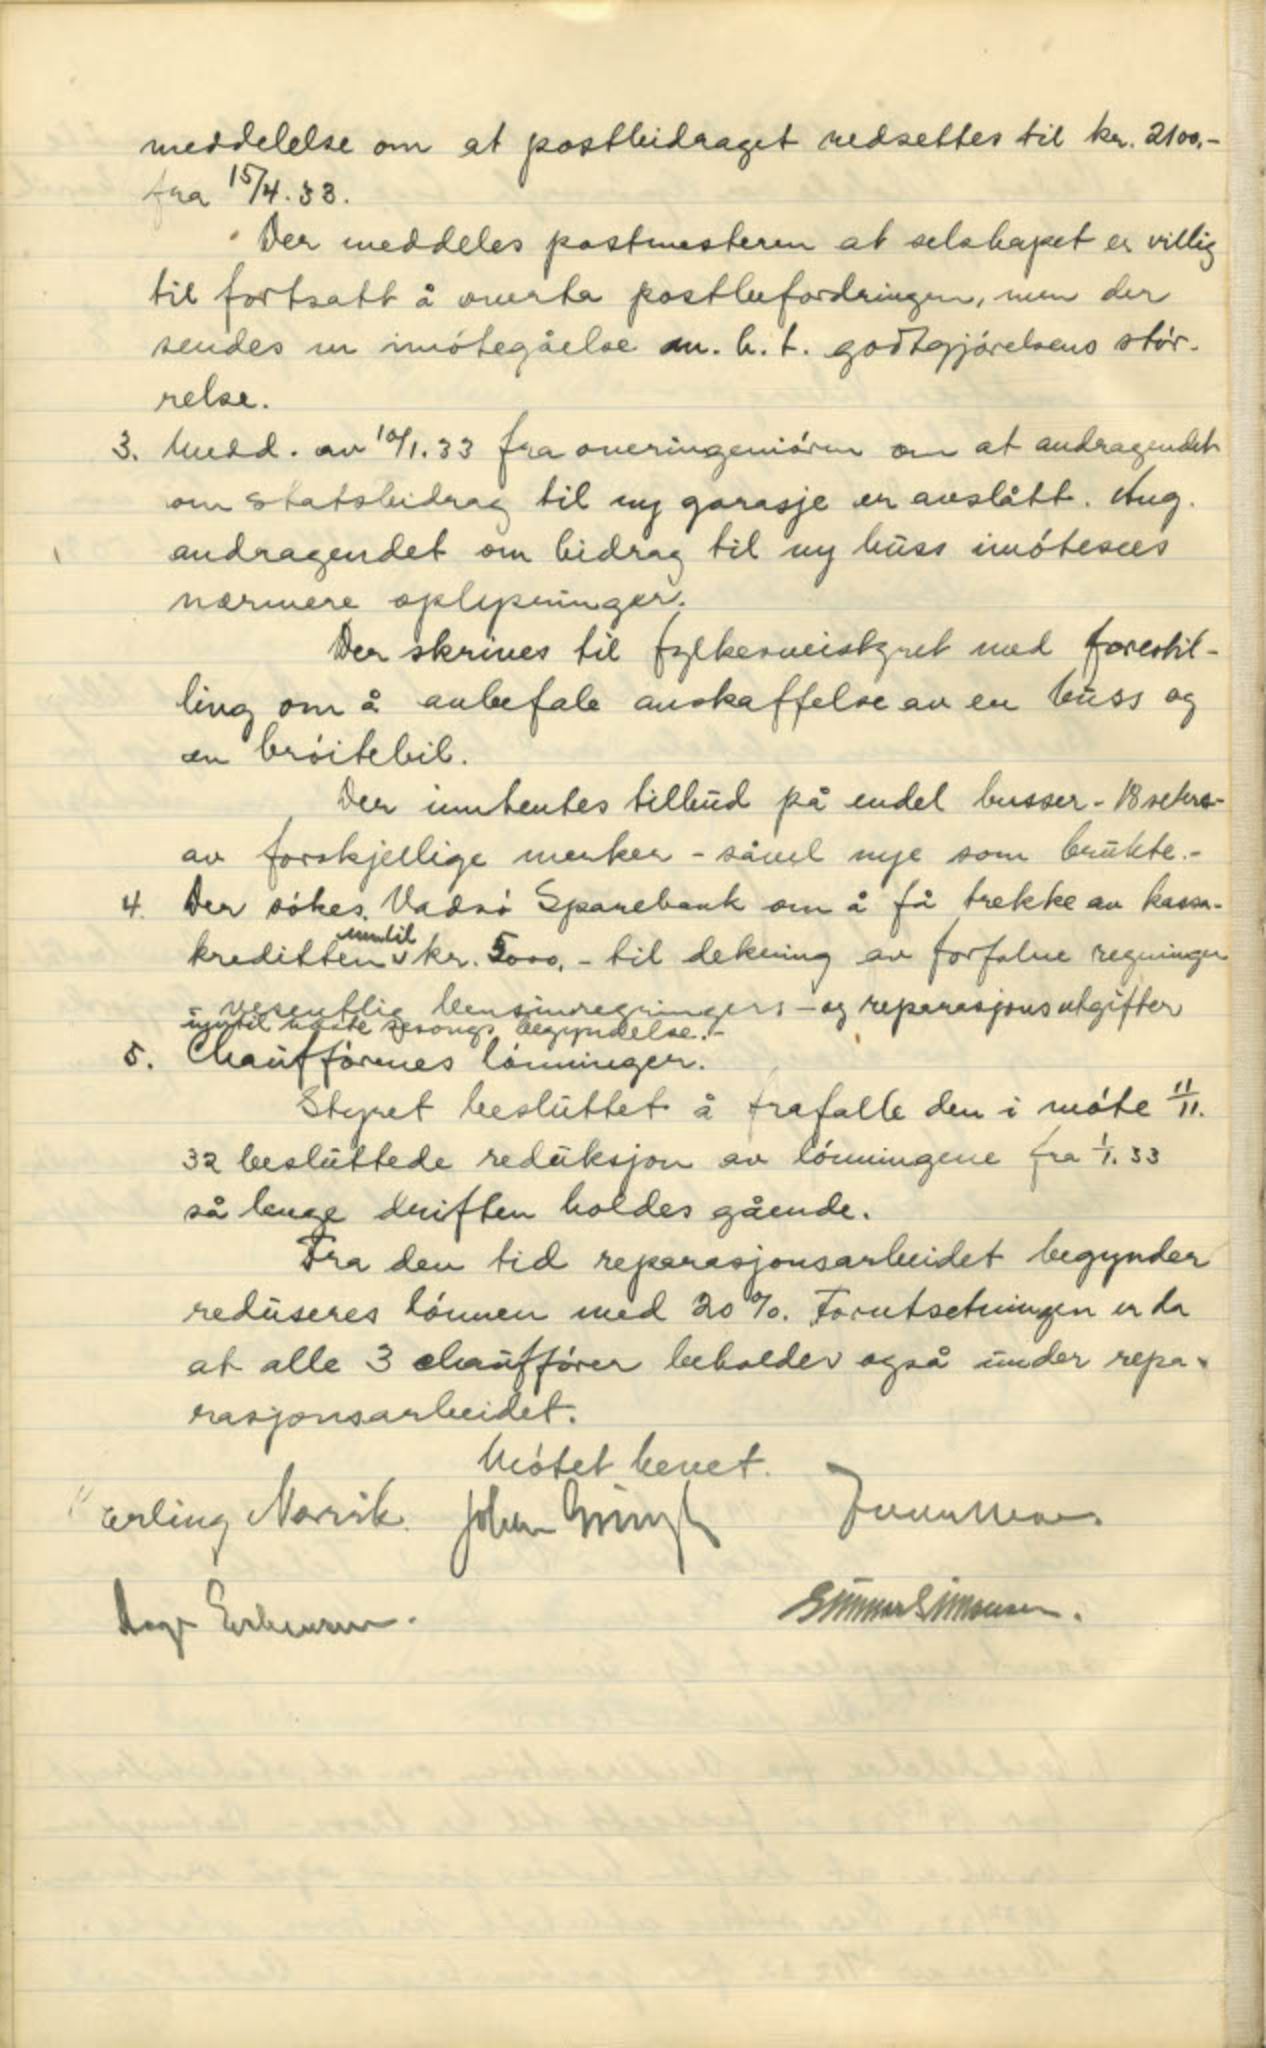 meddelelse om at postbidraget nedsettes til kr. 2100,-
fra 15/4.33.
Der meddeles postmesteren at selskapet er villig
til fortsatt å overta postbefordringen, men der
sendes en imøtegåelse m. h. t. godtgjørelsens stør-
relse.
3. Medd. av 10/1.33 fra overingeniøren om at andragendet
om statsbidrag til ny garasje er avslått. Ang.
andragendet om bidrag til ny buss imøtesees
nærmere oplysninger.
Der skrives til fylkesveistyret med forestil-
ling om å anbefale anskaffelse av en buss og
en brøitebil.
Der innhentes tilbud på endel busser - 18 seters -
av forskjellige merker - såvel nye som brukte.-
4. Der søkes Vadsø Sparebank om å få trekke av kassa-
kreditten inntil kr. 5000,- til dekning av forfalne regninger
- vesentlig bensinregninger - og reparasjonsutgifter
inntil næste sesongs begyndelse.-
5. Chaufførenes lønninger.
Styret besluttet å frafalle den i møte 11/11.
32 besluttede reduksjon av lønningene fra 1/1.33
så lenge driften holdes gående.
Fra den tid reparasjonsarbeidet begynder
reduseres lønnen med 20%. Forutsetningen er da
at alle 3 chauffører beholdes også under repa-
rasjonsarbeidet.
Møtet hevet.
Erling Norvik. Johan
Gunnar Simonsen.